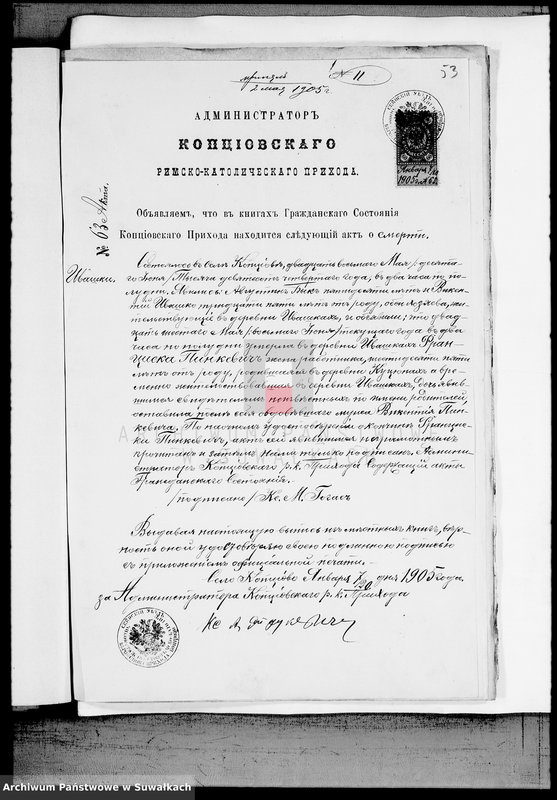 № 11
53
2 мая 1905 г
АДМИНИСТРАТОРЪ
КОПЦІОВСКАГО
РИМСКО-КАТОЛИЧЕСКАГО ПРИХОДА.
Января 7/20
1905 года
№ 63й Акта.
Объявляемъ, что въ книгахъ Гражданскаго Состоянія
Копціовскаго Прихода находится слѣдующій актъ о смерти.
Ивашки.
Состоялось въ селѣ Копціовѣ, двадцать восьмаго Мая /: десята-
го Іюня / Тысяча девятьсотъ четвертаго года, въ два часа по по-
лудни. Явились: Августинъ Бѣкъ пятидесяти лѣтъ и Викен-
тій Ивашко тридцати пяти лѣтъ отъ роду, оба
жительствующіе въ деревни Ивашкахъ, и объявили; что двад-
цать шестаго Мая / восьмаго Іюня / текущаго года въ два
часа по полудни умерла въ деревни Ивашкахъ Фран-
циска Пинкевичъ жена работника, шестидесяти пяти
лѣтъ отъ роду, родившаяся въ деревни а вре-
менно жительствовавшая въ деревни Ивашкахъ, дочь
неизвѣстныхъ по имени родителей,
оставила послѣ себя овдовѣвшаго мужа Викентія Пин-
кевича. По настоящемъ удостовѣреніи о кончинѣ Францис-
ки Пинкевичъ, актъ сей явившимся неграмотнымъ
прочитанъ и затѣмъ Нами только подписанъ. Админи-
страторъ Копціовскаго р. к. Прихода Содержащій акты
Гражданскаго Состоянія.
/подписано/ Кс. М.
Выдавая настоящую выпись изъ метрическихъ книгъ, вѣр-
ность оной удостовѣряю своею подлинною подписью
съ приложеніемъ оффиціальной печати.
Село Копціово Января 7/20 дня 1905 года.
за Администратора Копціовскаго р. к. Прихода
Кс А.
Archiwum Państwowe w Suwałkach